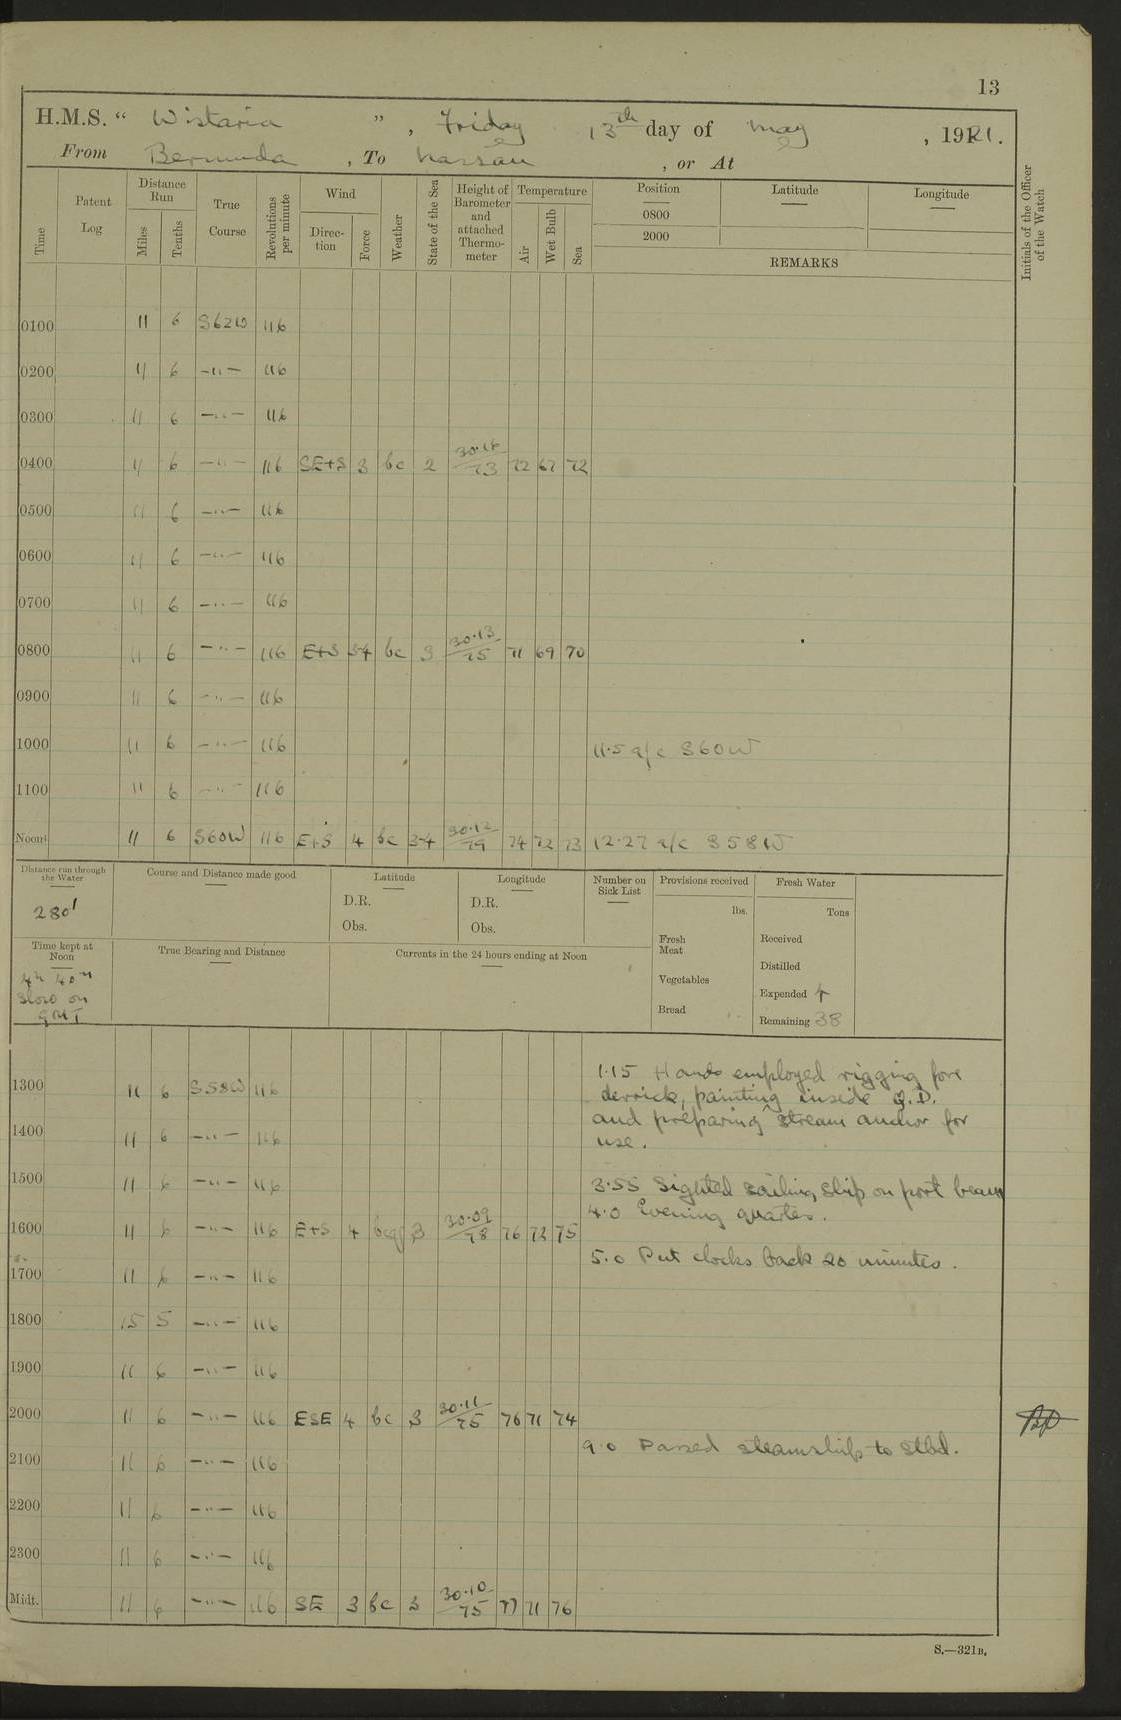 13
H.M.S. “ Wistaria ” , Friday 13th day of May , 1921.
From Bermuda , To Nassau , or At
Time Patent Log Distance Run Miles Tenths True Course Revolutions per minute Wind Direction Force Weather State of the Sea Height of Barometer and attached Thermometer Temperature Air Wet Bulb Sea Position Latitude Longitude Initials of the Officer of the Watch
0800
2000
REMARKS
0100 11 6 S62W 116
0200 11 6 –"– 116
0300 11 6 –"– 116
0400 11 6 –"– 116 SE+S 3 bc 2 30.16/73 72 67 72
0500 11 6 –"– 116
0600 11 6 –"– 116
0700 11 6 –"– 116
0800 11 6 –"– 116 E+S 3-4 bc 3 30.13/75 71 69 70
0900 11 6 –"– 116
1000 11 6 –"– 116 11.5 a/c S60W
1100 11 6 –"– 116
Noon 11 6 S60W 116 E+S 4 bc 3-4 30.12/79 74 72 73 12.27 a/c S58W
Distance run through the Water Course and Distance made good Latitude Longitude Number on Sick List Provisions received Fresh Water
280' D.R. D.R. lbs. Tons
Obs. Obs.
Time kept at Noon True Bearing and Distance Currents in the 24 hours ending at Noon Fresh Meat Received
4h 40m Vegetables Distilled
slow on Expended 4
GMT Bread Remaining 38
1300 11 6 S58W 116 1.15 Hands employed rigging fore
derrick, painting inside Q.D.
1400 11 6 –"– 116 and preparing stream anchor for
use.
1500 11 6 –"– 116 3.55 Sighted sailing ship on port beam
4.0 Evening quarters.
1600 11 6 –"– 116 E+S 4 3 30.09/78 76 72 75
5.0 Put clocks back 20 minutes.
1700 11 6 –"– 116
1800 15 5 –"– 116
1900 11 6 –"– 116
2000 11 6 –"– 116 ESE 4 bc 3 30.11/75 76 71 74
9.0 Passed steamship to stbd.
2100 11 6 –"– 116
2200 11 6 –"– 116
2300 11 6 –"– 116
Midt. 11 6 –"– 116 SE 3 bc 3 30.10/75 77 71 76
S.—321B.